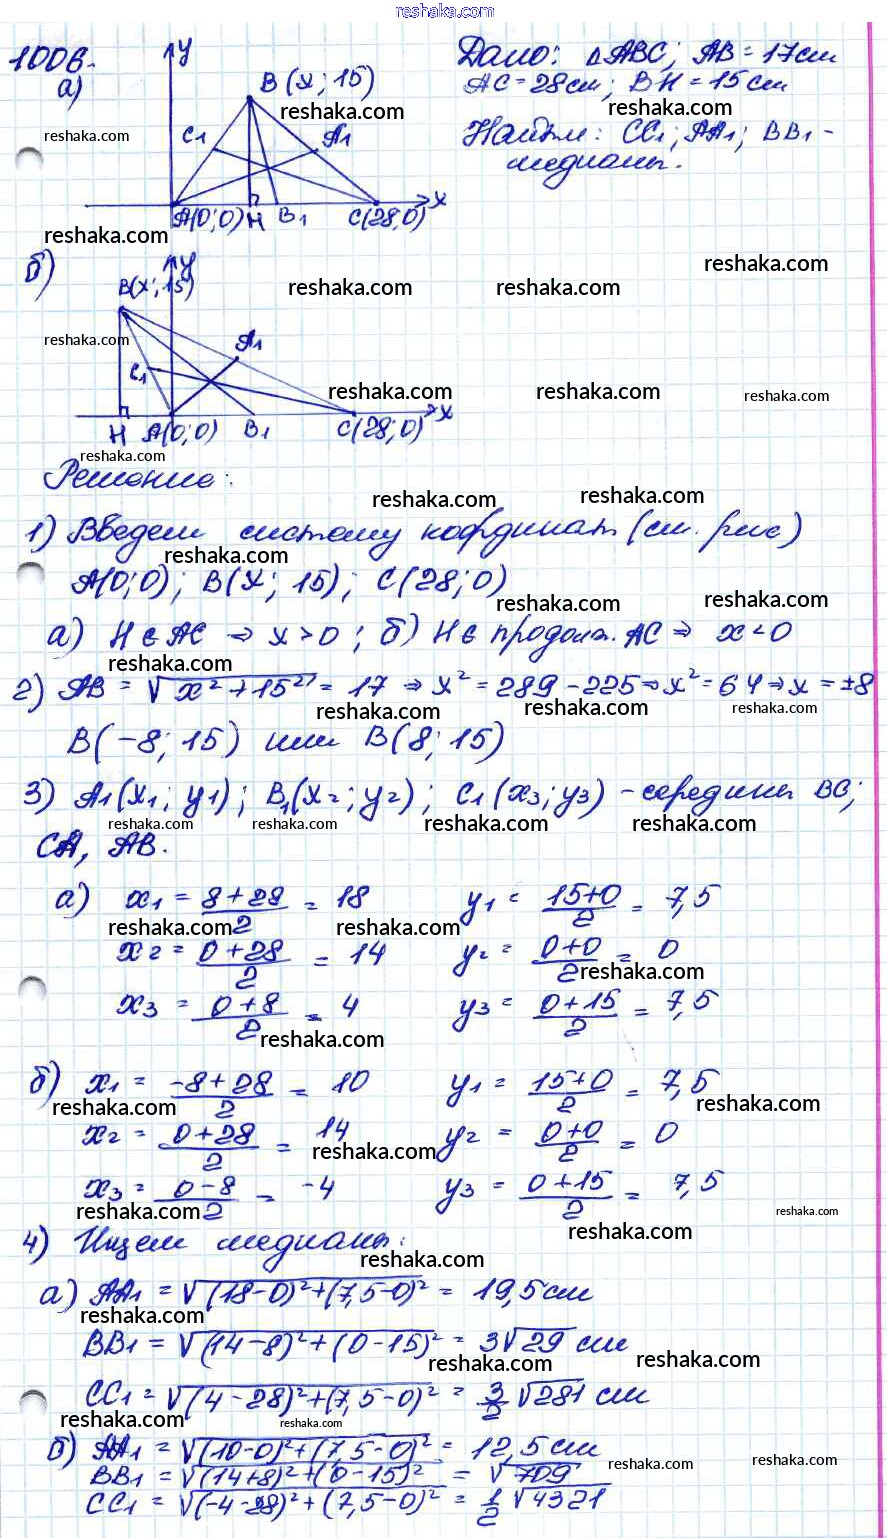 reshaka.com
1006.
а)
y
B (x; 15)
C1
A1
A(0;0) H B1 C(28;0) x
Дано: △ABC; AB = 17см
AC = 28см; BH = 15см
Найти: CC1; AA1; BB1 -
медианы.
б)
y
B(x; 15)
A1
C1
H A(0;0) B1 C(28;0) x
Решение:
1) Введем систему координат (см. рис)
A(0;0); B(x; 15); C(28;0)
а) H ∈ AC ⇒ x > 0; б) H ∈ продолж. AC ⇒ x < 0
2) AB = √(x² + 15²) = 17 ⇒ x² = 289 - 225 ⇒ x² = 64 ⇒ x = ±8
B(-8; 15) или B(8; 15)
3) A1(x1; y1); B1(x2; y2); C1(x3; y3) - середины BC;
CA, AB.
а) x1 = (8+28)/2 = 18 y1 = (15+0)/2 = 7,5
x2 = (0+28)/2 = 14 y2 = (0+0)/2 = 0
x3 = (0+8)/2 = 4 y3 = (0+15)/2 = 7,5
б) x1 = (-8+28)/2 = 10 y1 = (15+0)/2 = 7,5
x2 = (0+28)/2 = 14 y2 = (0+0)/2 = 0
x3 = (0-8)/2 = -4 y3 = (0+15)/2 = 7,5
4) Ищем медианы:
а) AA1 = √((18-0)²+(7,5-0)²) = 19,5см
BB1 = √((14-8)²+(0-15)²) = 3√29 см
CC1 = √((4-28)²+(7,5-0)²) = 3/2 √281 см
б) AA1 = √((10-0)²+(7,5-0)²) = 12,5см
BB1 = √((14+8)²+(0-15)²) = √709
CC1 = √((-4-28)²+(7,5-0)²) = 1/2 √4321